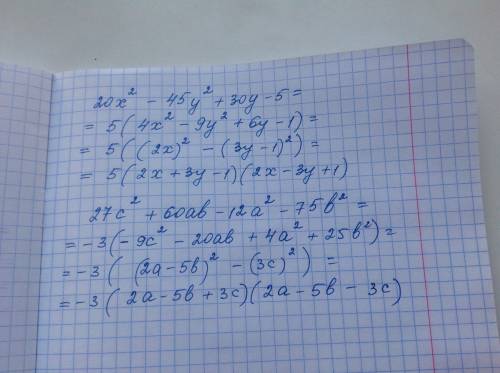 20x² - 45y² + 30y - 5 =
= 5(4x² - 9y² + 6y - 1) =
= 5((2x)² - (3y - 1)²) =
= 5(2x + 3y - 1)(2x - 3y + 1)
27c² + 60ab - 12a² - 75b² =
= -3(-9c² - 20ab + 4a² + 25b²) =
= -3( (2a - 5b)² - (3c)² ) =
= -3( 2a - 5b + 3c)(2a - 5b - 3c)